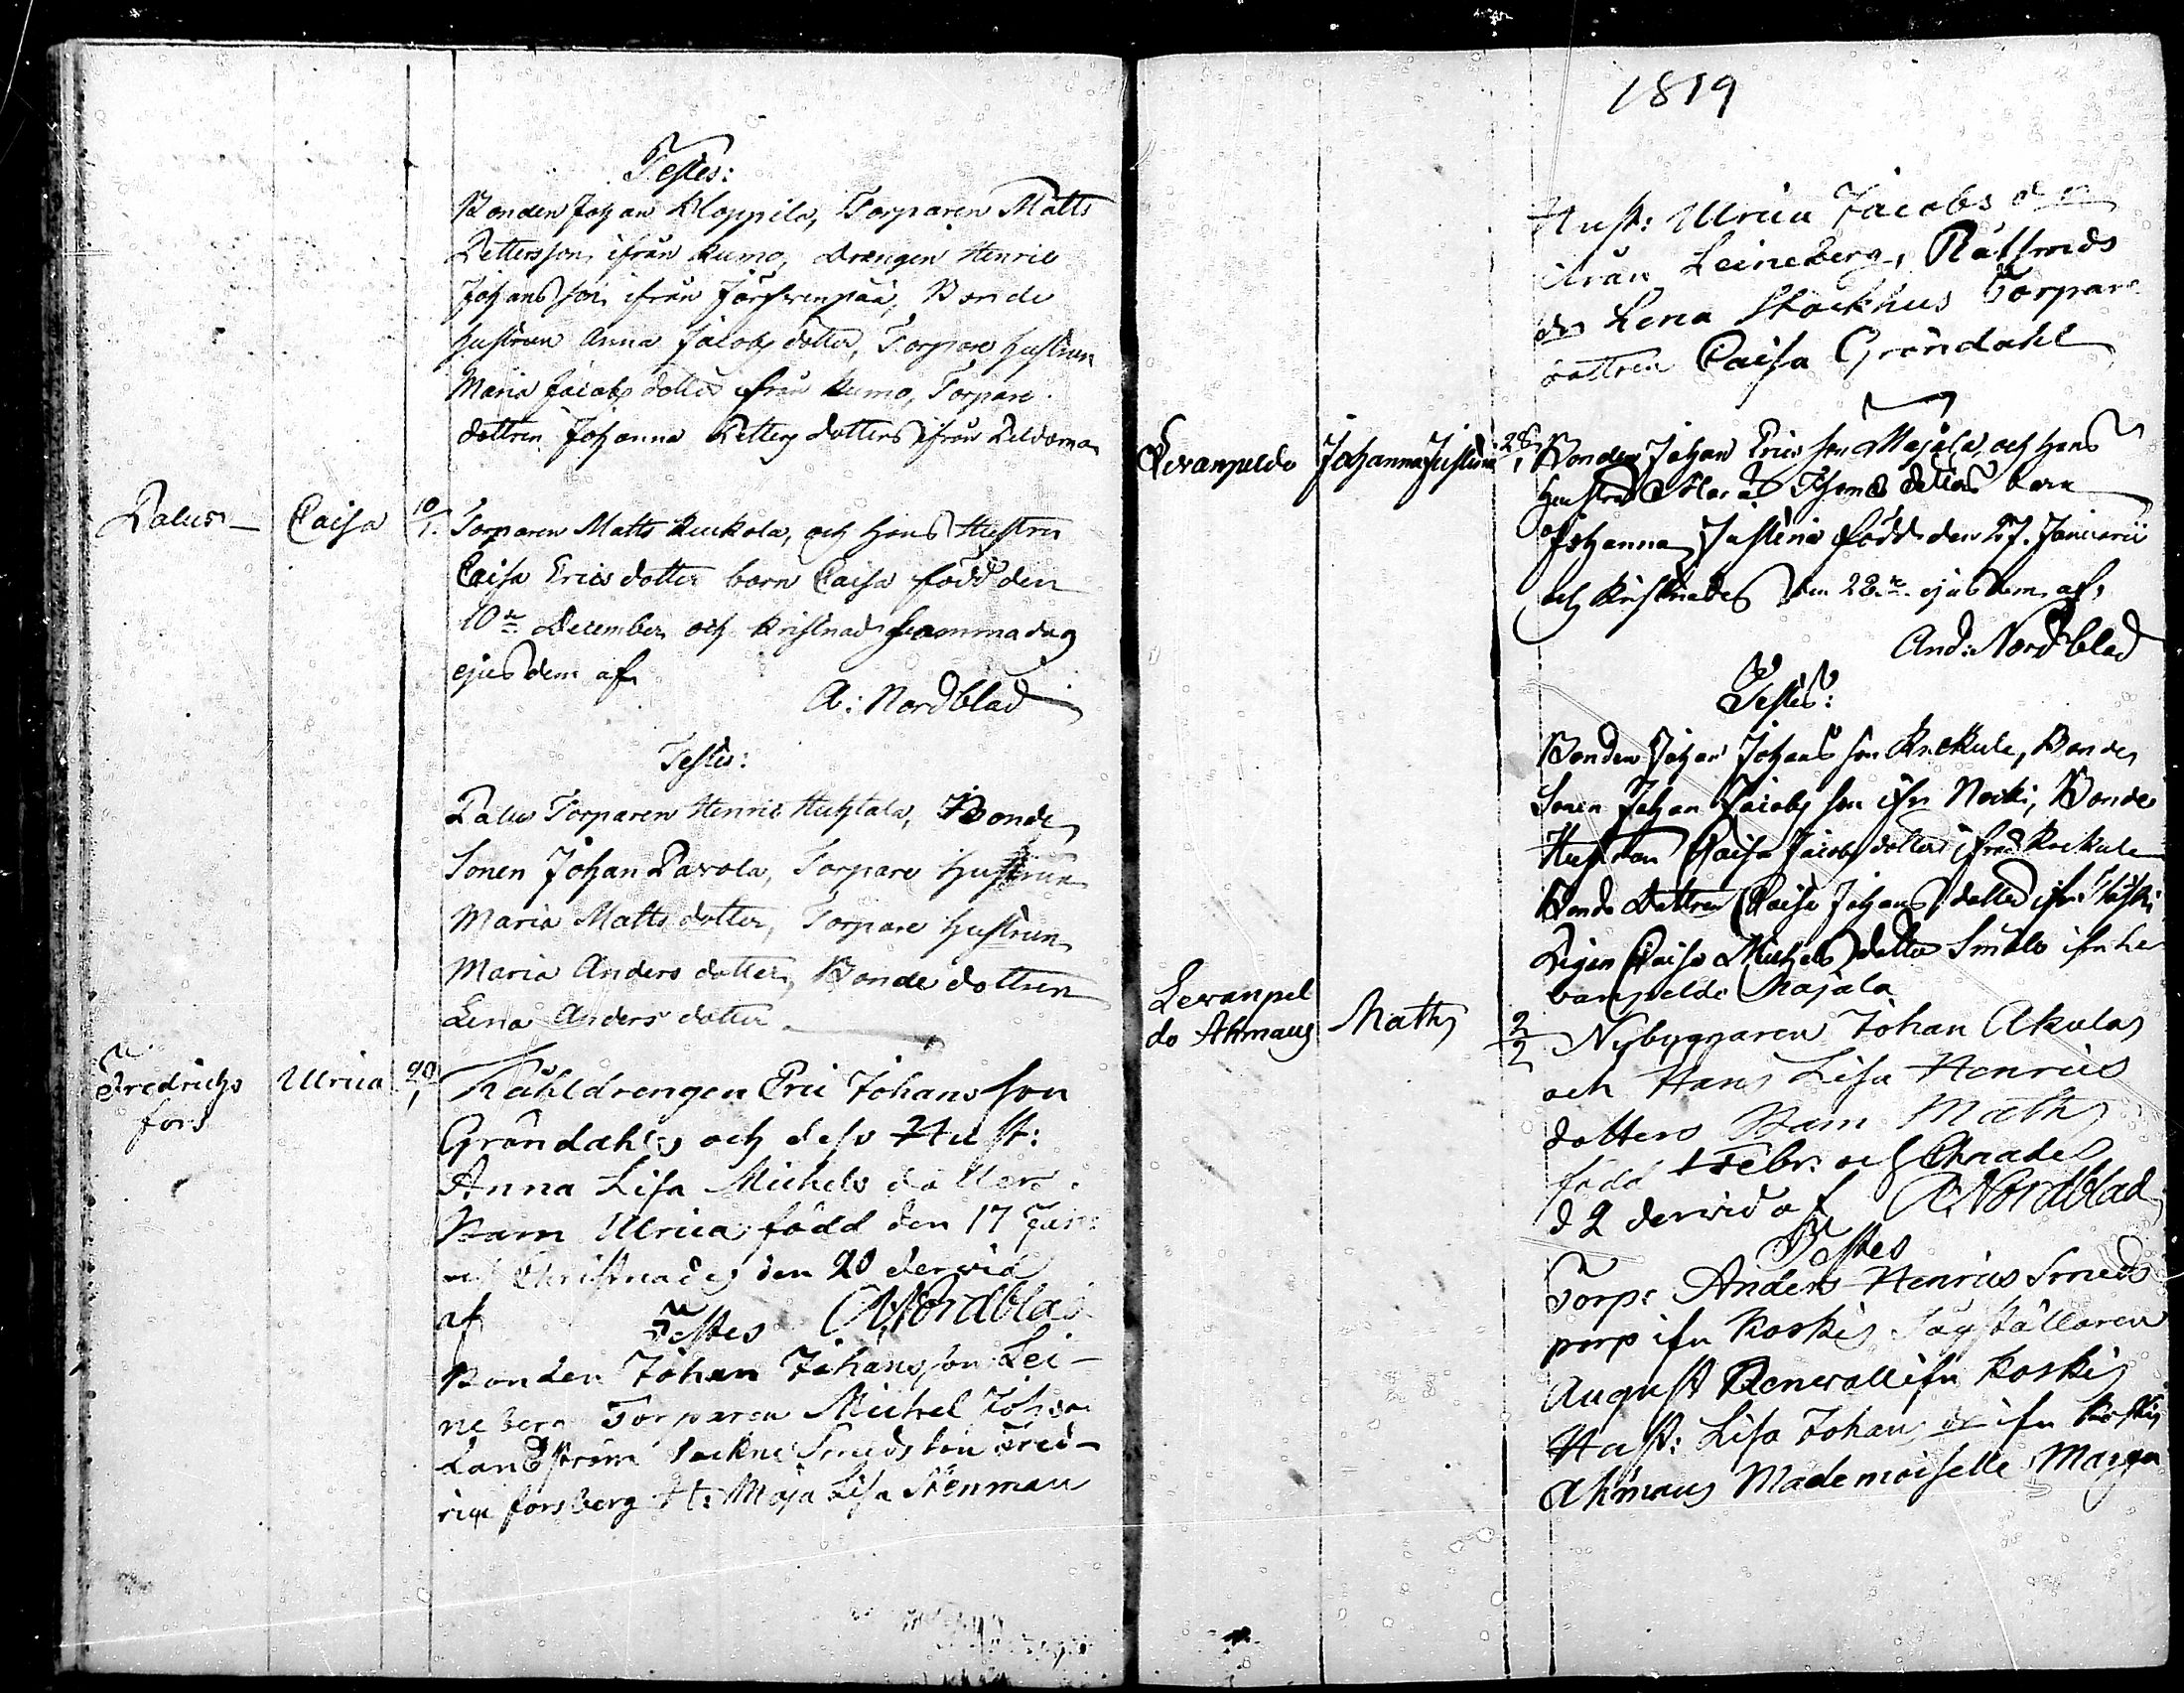 Testes:
Bonden Johan Kloppila, Torparen Matts
Pettersson ifrån Kumo, Drengen Henric
Johansson ifrån Järfvenpää, Bonde
hustrun Anna Jacobs dotter, Torpare hustrun
Maria Jacobs dotter ifrån Kumo, Torpare
dottren Johanna Petters dotter ifrån
Palus Caisa 10/1. Torparen Matts Kuckola, och hans Hustru
Caisa Erics dotters barn Caisa född den
10de December och kristnad samma dag
ejusdem af
A: Nordblad
Testes:
Palus Torparen Henric Huhtala, Bonde
Sonen Johan Pavola, Torpare hustrun
Maria Matts dotter, Torpare hustrun
Maria Anders dotter, Bonde dottren
Lena Anders dotter
Fredrichs Ulrica 20/1 Kåhldrengen Eric Johans son
fors
Gröndahls och dess Hust:
Anna Lisa Michels dotters
Barn Ulrica född den 17 Jan:
och Christnades den 20 dervid
af Testes A Nordblad
Bonden Johan Johansson Lei-
neberg Torparen Michel Johan
Landström Smeds son Fred-
ric forsberg H: Maja Lisa Stenman
1819
Hust: Ulrica Jacobs dr
ifrån Leineberg, Rålsmeds
dr Lena Stockhus Torpare
dottren Caisa Gröndahl
Levanpeldo Johanna Justina 28/1 Bonden Johan Ericsson Majala, och hans
hustrus Maria Thomas dotters barn
Johanna Justina född den 27. Januarii
och Kristnades den 28de ejusdem af,
And: Nordblad
Testes:
Bonden Johan Johans son Knckula, Bonde
Sonen Johan Jacobs son ifrn Nocki, Bonde
Hustrun Caisa Jacobs dotter ifrån Kockula
Bonde Dottren Caisa Johans dotter ifrn
Pigan Caisa Michels dotter Smeds ifrn Le
vanpeldo Majala
Levanpel
do Ahmaus Maths 2/2 Nybyggaren Johan Akulas
och Hans Lisa Henrics
dotters Barn Maths
född 1 Febr: och Chnades
d 2 dervid af A Nordblad
Testes
Torp: Anders Henrics Smeds
porp ifrn Koskis Sågställaren
August Renvall ifrn Koskis
Hust: Lisa Johans dr ifrn Koskis
Ahmaus Mademoiselle Magga